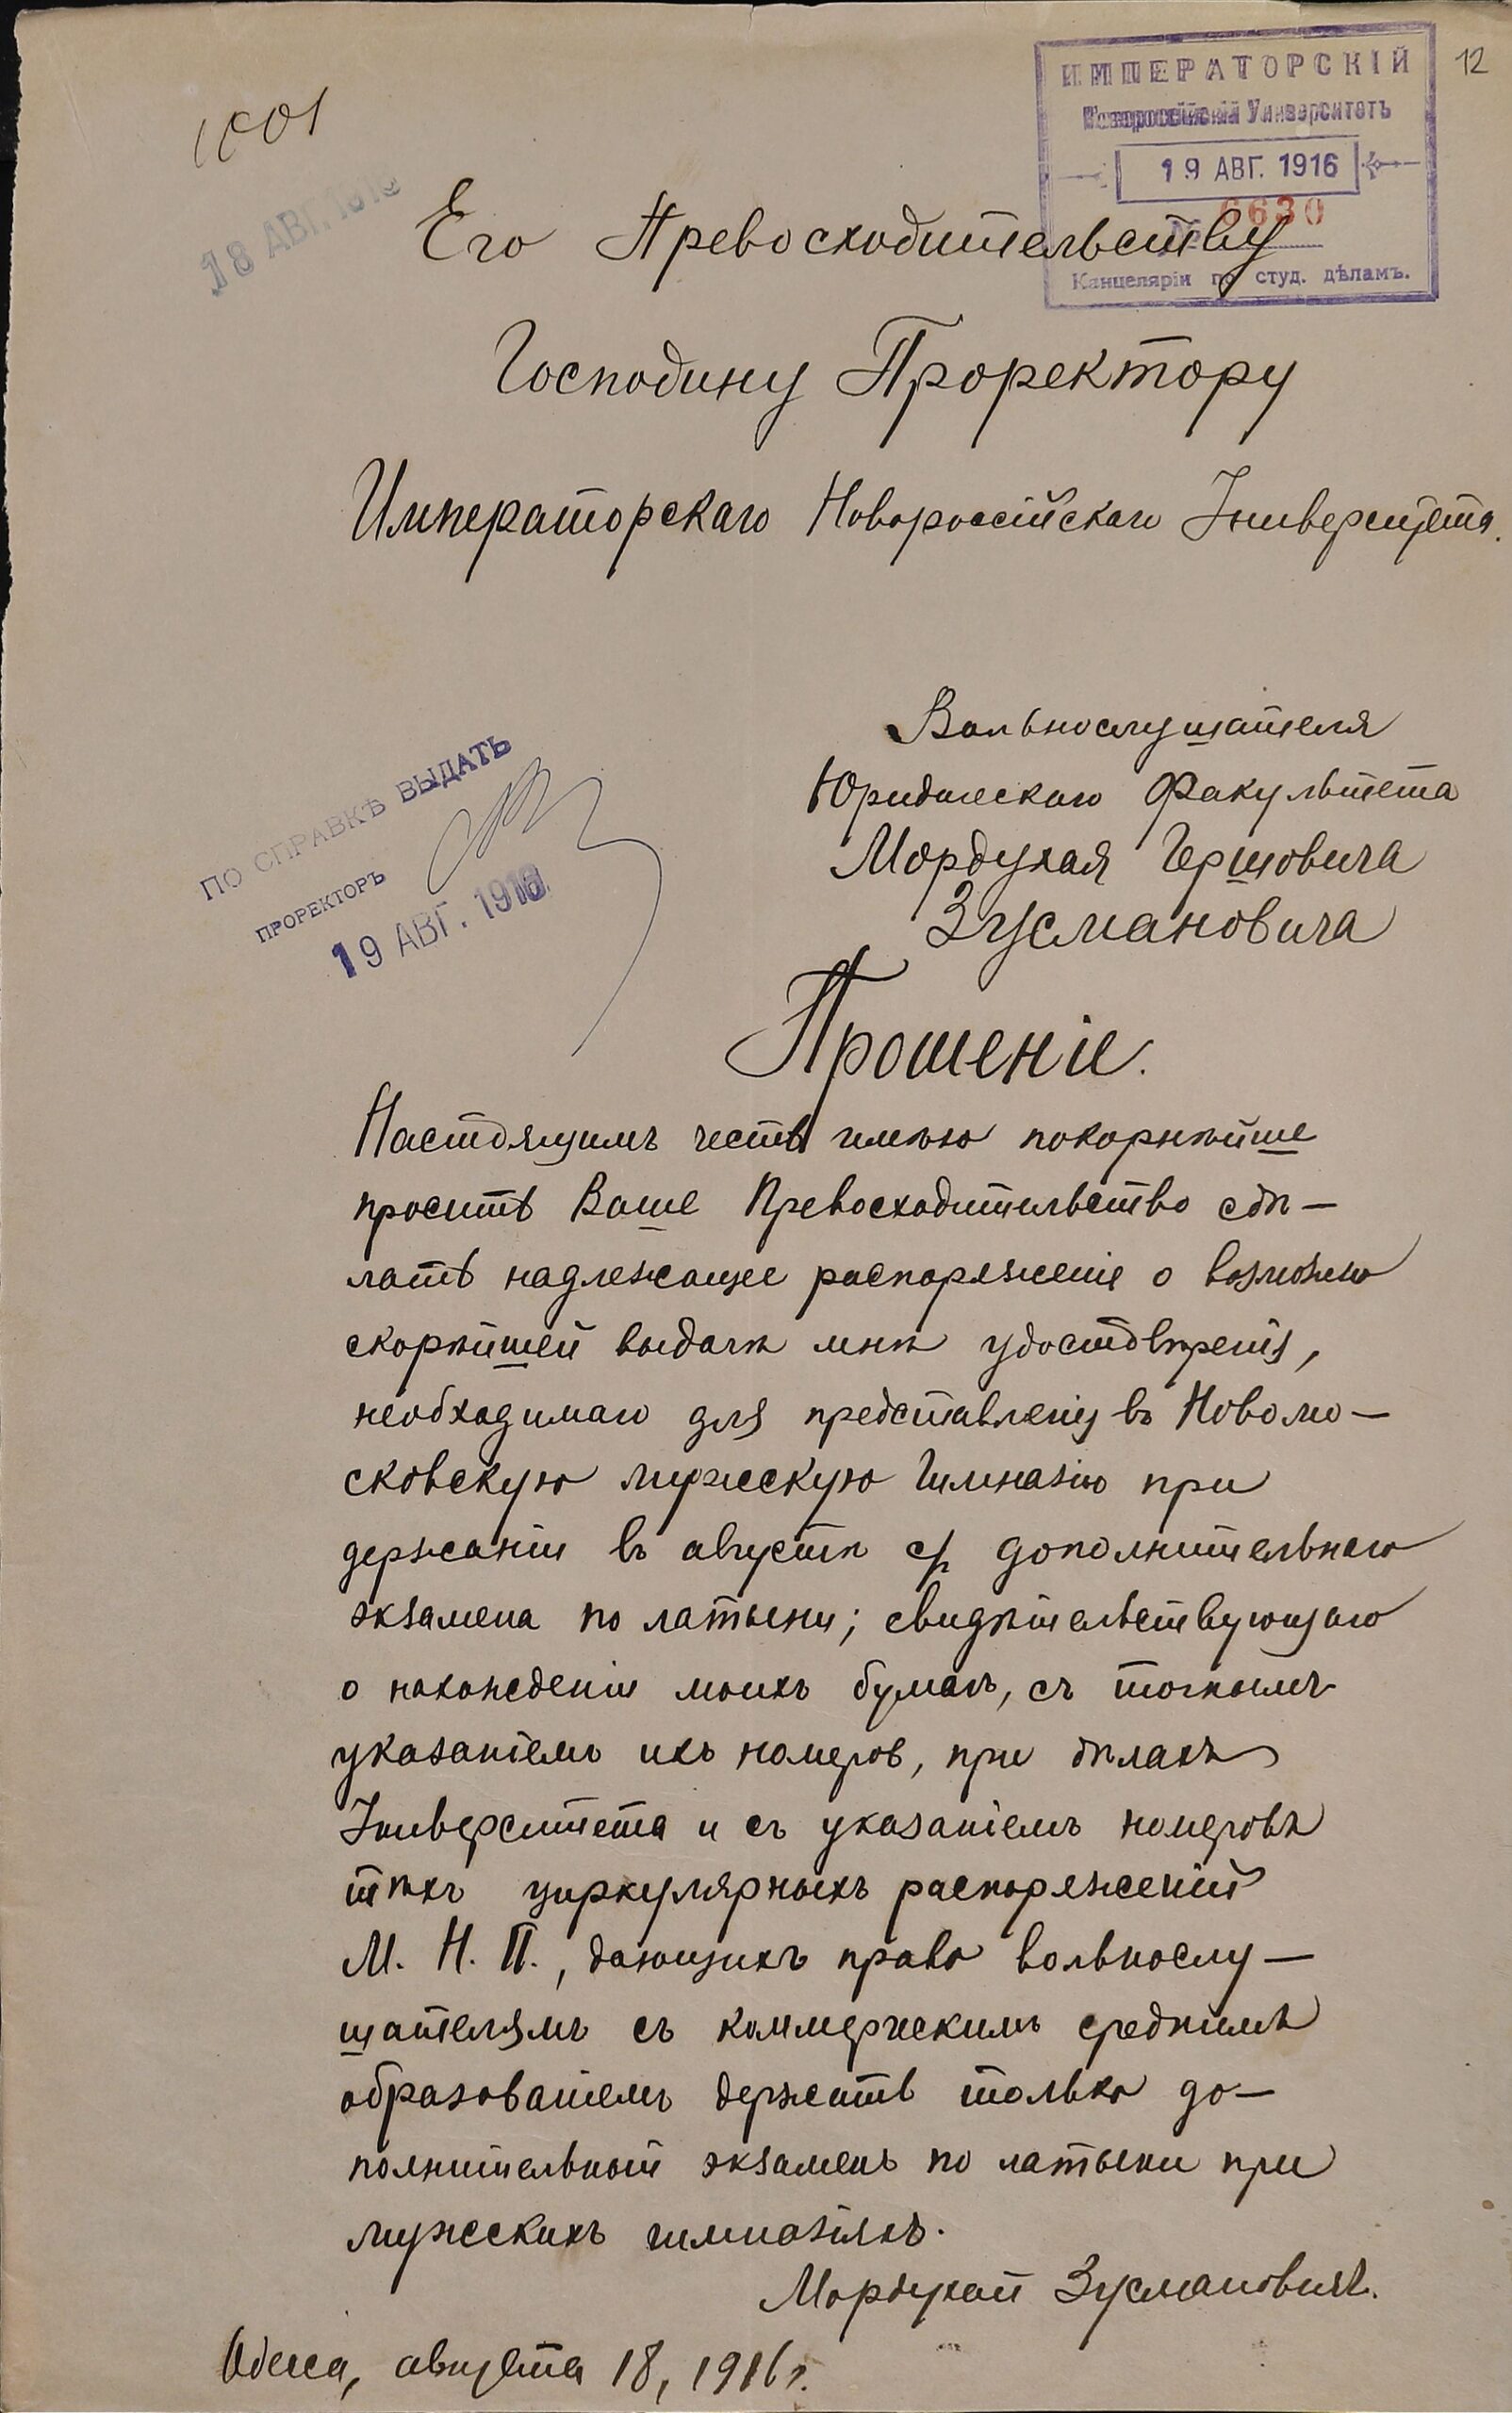 12
ИМПЕРАТОРСКІЙ
Новороссійскій Университетъ
19 АВГ. 1916
6630
Канцелярія по студ. дѣламъ.
18 АВГ. 1916
Его Превосходительству
Господину Проректору
Императорскаго Новороссійскаго Университета.
Вольнослушателя
Юридическаго Факультета
Мордухая Гершовича
Зусмановича
ПО СПРАВКѢ ВЫДАТЬ
ПРОРЕКТОРЪ
19 АВГ. 1916
Прошеніе.
Настоящимъ честь имѣю покорнѣйше
просить Ваше Превосходительство сдѣ-
лать надлежащее распоряженіе о возможно
скорѣйшей выдачѣ мнѣ удостовѣренія,
необходимаго для представленія въ Новомо-
сковскую мужскую Гимназію при
держаніи въ августѣ с/г дополнительнаго
экзамена по латыни; свидѣтельствующаго
о нахожденіи моихъ бумагъ, съ точнымъ
указаніемъ ихъ номеров, при дѣлахъ
Университета и съ указаніемъ номеровъ
тѣхъ циркулярныхъ распоряженій
М. Н. П., дающихъ право вольнослу-
шателямъ съ коммерческимъ среднимъ
образованіемъ держать только до-
полнительный экзаменъ по латыни при
мужскихъ гимназіяхъ.
Мордухай Зусмановичъ.
Одесса, августа 18, 1916 г.